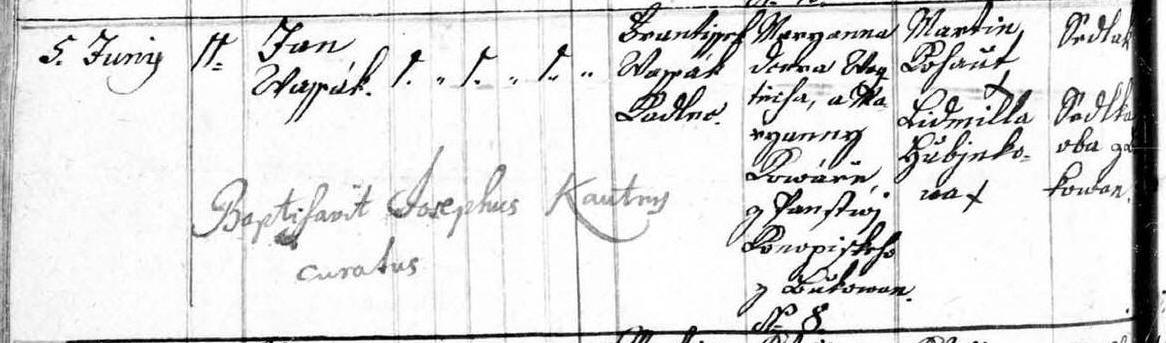 5. Juny 11. Jan
Wassák. 1. „ 1. „ 1. „
Frantissek
Wassák
Kadlec.
Maryanna
dcera Woy
tiecha, a Ma
ryanny
Kowáře,
z Panstwj
Konopisstskeho
z Bukowan.
No 8.
Martin
Kohaut
+
Lidmilla
Hubjnko=
wa +
Sedlak
Sedlka
oba z Bu
kowan.
Baptisavit Josephus Kautny
curatus